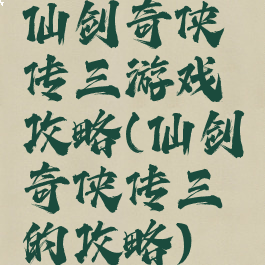 仙剑奇侠
传三游戏
攻略(仙剑
奇侠传三
的攻略)